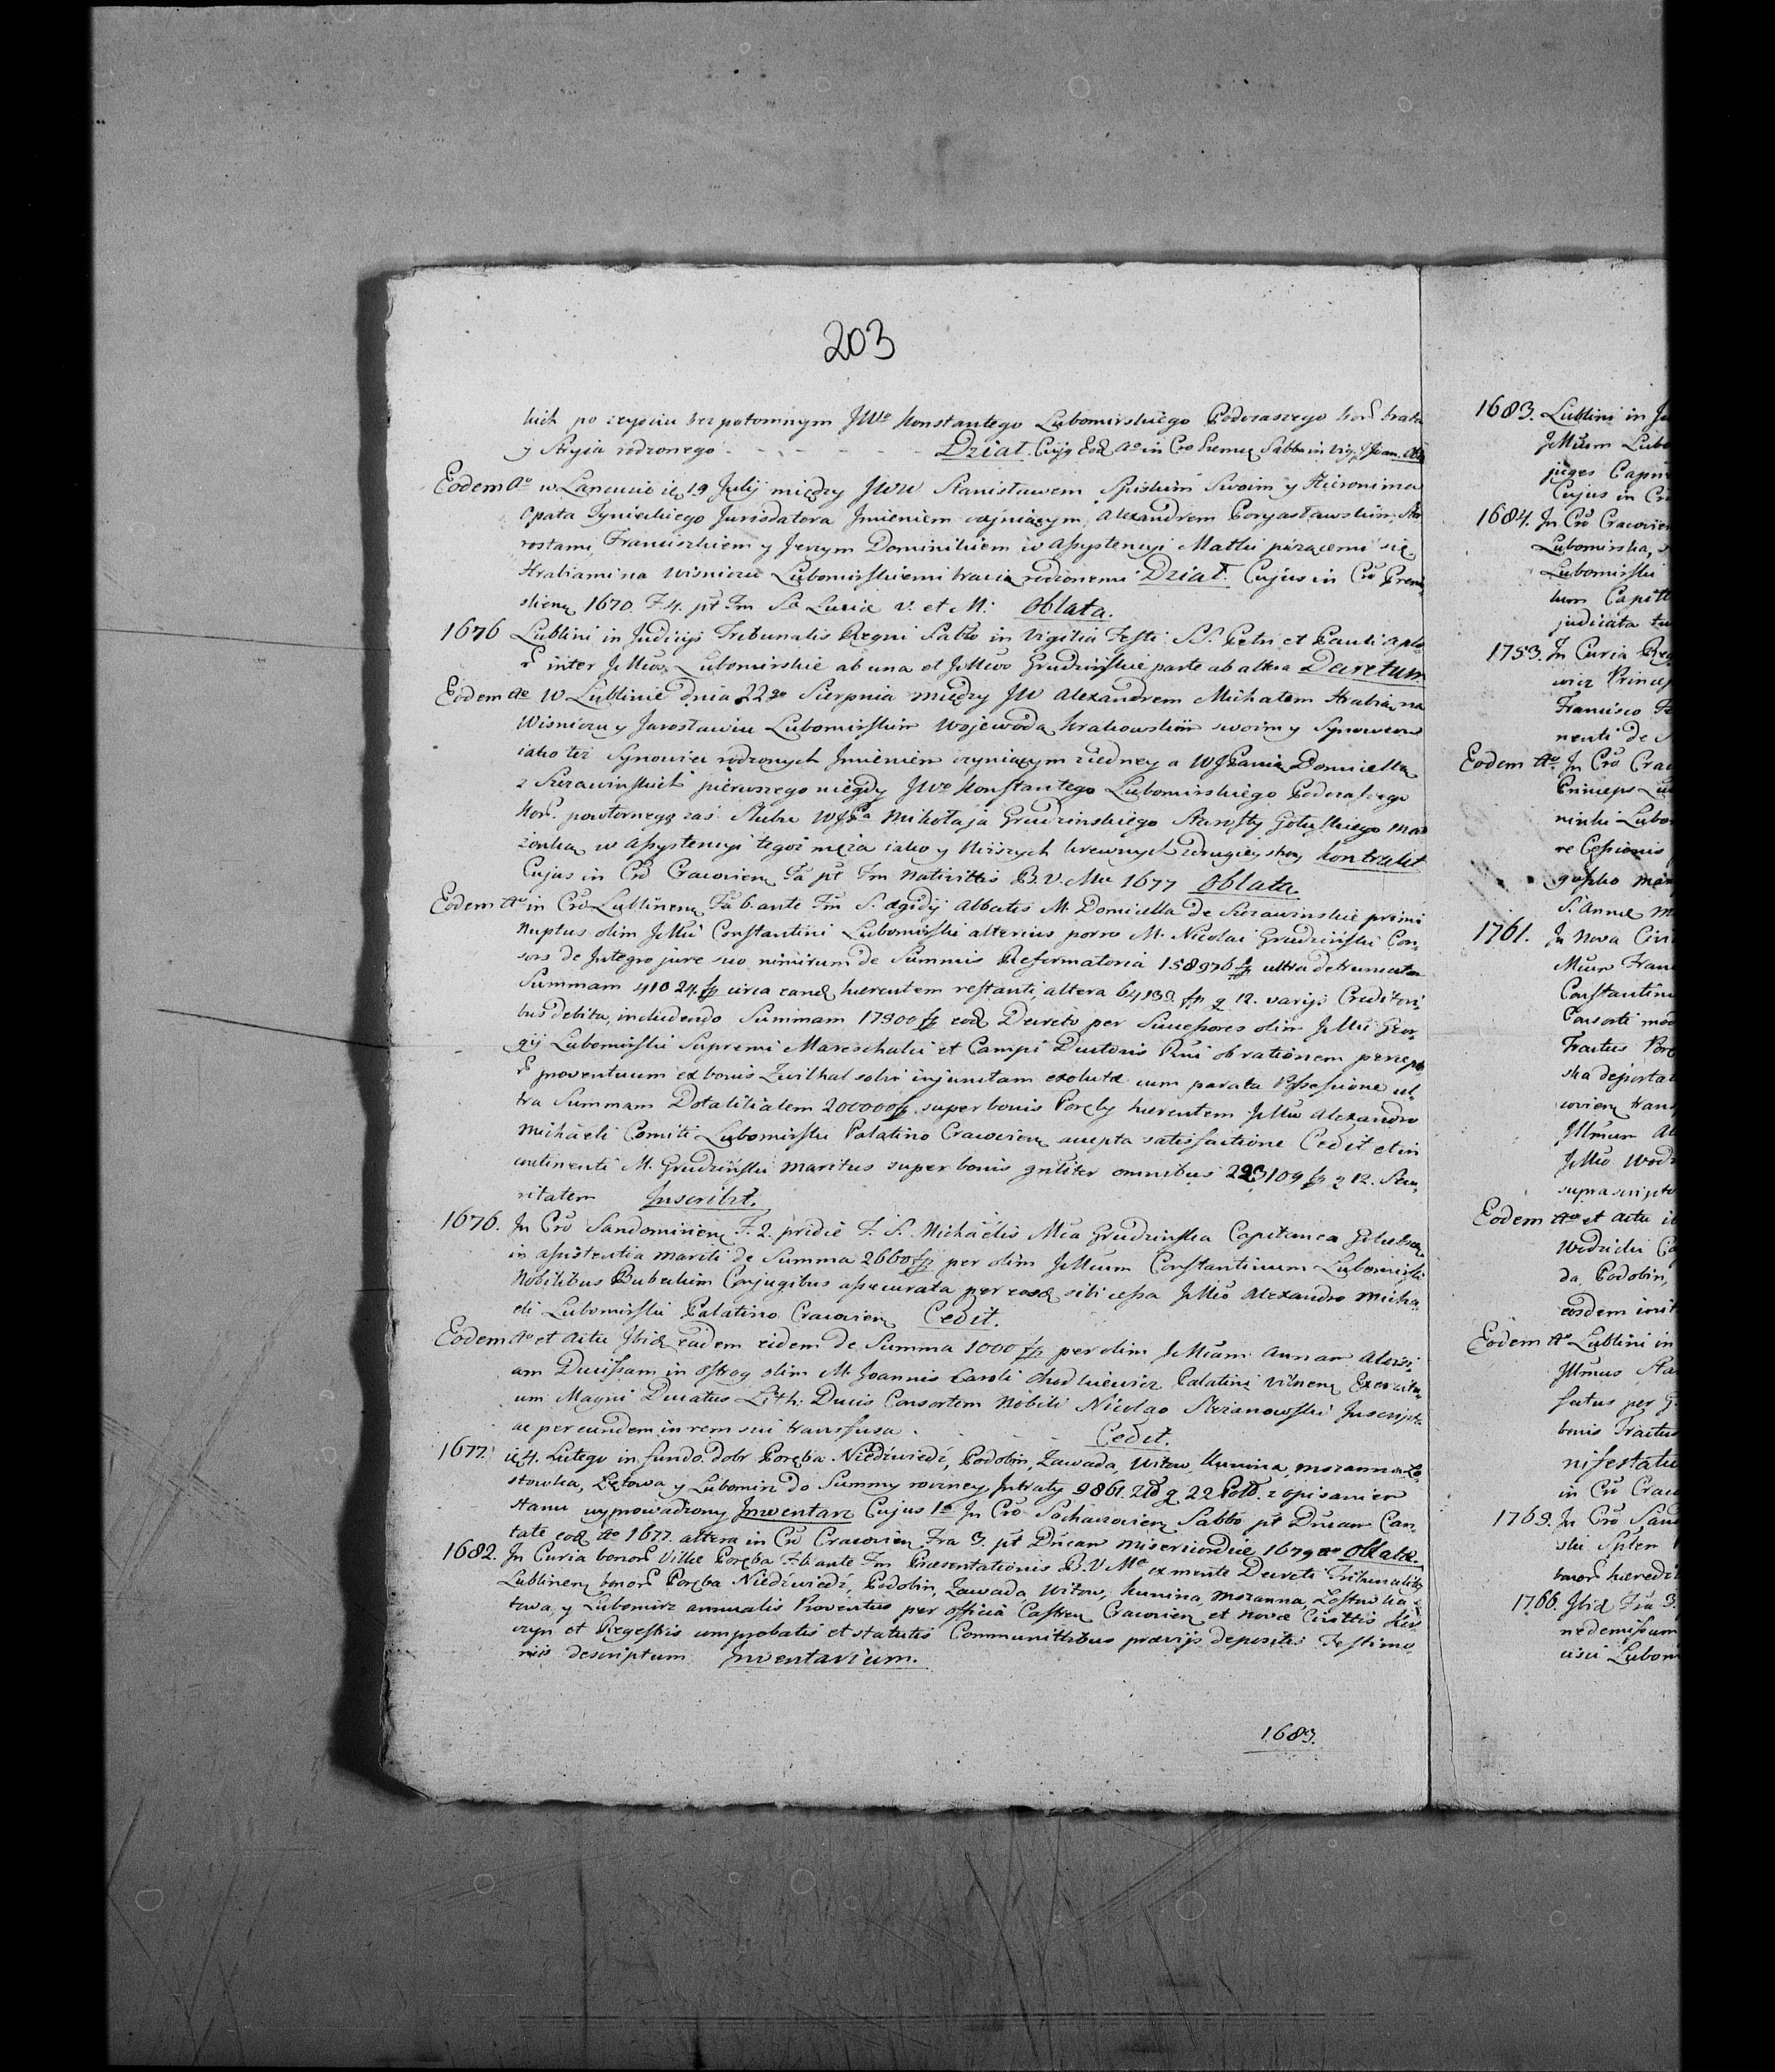 203
kich po zeysciu bezpotomnym JWo Konstantego Lubomirskiego Podczaszego Kor̃
y Stryia rodzonego - - - - - - Dział. Cujq Eod Ao in Cro Sabbo in Vig.
Eodem Ao w Lancucie 19 Julij między JWW Stanisławem Spiskim Swoim y Hieronima
Opata Tynieckiego Jurisdatora Jmieniem czyniącym, Alexandrem Peryasławskim, Sta
rostami, Franciszkiem y Jerzym Dominikiem w Assystencyi Matki piszącemi się
Hrabiami na Wisniczu Lubomirskiemi bracią rodzonemi Dział. Cujus in Cro Prem
slien 1670. F. 4. pt Fm Sa Lucia V. et M. Oblata.
1676 Lublini in Judicijs Tribunalis Regni Sabbo in Vigilia Festi S.S. Petri et Pauli Aplo
r̃ inter JMcos Lubomirskie ab una et JMcos Grudzinskie parte ab altera Decretum.
Eodem Ao W Lublinie dnia 22go Sierpnia między JW Alexandrem Michałem Hrabią na
Wisniczu y Jarosławiu Lubomirskim Wojewodą Krakowskim swoim y Synowcow
iako też Synowic rodzonych Jmieniem czyniącym z iedney a WJPanią Domicellą
z Sczawinskich pierwszego niegdy JWo Konstantego Lubomirskiego Podczaszego
Kor. powtornego zas slubu WJPa Mikołaja Grudzinskiego Starosty Golubskiego mał
żonką w Assystencyi tegoż męża iako y blizszych krewnych z drugiey stony Kontrakt
Cujus in Cro Cracovien Fa pt Fm Nativittis B. V. Mae 1677 Oblata
Eodem Ao in Cro Lublinen Fa 6. ante Fm S. Ægidij Abbatis M. Domicella de Sczawinskie primi
Nuptus olim JMci Constantini Lubomirski alterius porro M. Nicolai Grudzinski Con-
sors de Integro jure suo nimirum de Summis Reformatoria 158976 fp ultra detruncata
Summam 41024. fp circa eand hærentem restanti, altera 64132 fp g 12. varijs Creditori-
bus debita, includendo Summam 17900 fp eod Decreto per Successores olim JMci Geor-
gij Lubomirski Supremi Mareschalci et Campi Ductoris Rni ob rationem percepto
r̃ proventuum ex bonis Zwilhal solvi injunctam exolutæ cum parata Possessione ul-
tra Summam Dotalitialem 200000 fp super bonis Poręby hærentem JMco Alexandro
Michaeli Comiti Lubomirski Palatino Cracovien accepta satisfactione Cedit et in
continenti M. Grudzinski maritus super bonis gnliter omnibus 223109 fp g 12. Secu-
ritatem Inscribit.
1676. In Cro Sandomirien F. 2. pridie F. S. Michaelis Mca Grudzinska Capitanea Golubscen
in assistentia mariti de Summa 2660 fp per olim JMcum Constantinum Lubomirski
Nobilibus Conjugibus assecurata per eosd sibi cessa JMco Alexandro Micha
eli Lubomirski Palatino Cracovien Cedit.
Eodem Ao et Actu Ibid eadem eidem de Summa 1000 fp per olim JMcam Annam Aloisi
am Ducissam in Ostrog olim M. Joannis Caroli Chodkiewicz Palatini Vilnen Exercitu-
um Magni Ducatus Lith: Ducis Consortem Nobili Nicolao Inscripta
ac per eundem in rem sui transfusa - - - Cedit.
1677. 4. Lutego in fundo dobr Poręba Niedzwiedź, Podobin, Zawada, Witow, Kunina, Mszanna Lo
stowka, Łętowa y Lubomirz do Summy roczney Intraty 9861. Złd g 22 z opisaniem
stanu wyprowadzony Jnwentarz Cujus 1a In Cro Sochaczovien Sabbo pt Dncam Can-
tate eod Ao 1677. altera in Cro Cracovien Fra 3. pt Dncam Misericordiæ 1679 Ao Oblatæ.
1682. In Curia bonor̃ Villæ Poręba F. 6 ante Fm Præsentationis B. V. Mæ ex mente Decreti Tribunalis
Lublinen bonor̃ Poręba Niedzwiedź, Podobin, Zawada Witow, Kunina, Mszanna, Lostowka
towa, y Lubomirz annualis Proventus per officia Castren Cracovien et Novæ Civittis
czyn et Regestris comprobatis et statutis Communittibus prævijs depositis Testimo-
niis descriptum Inventarium.
1683.
1683. Lublini in
JMcum Lubo
juges
Cujus in Cr
1684. In Cro Cracovien
Lubomirska,
Lubomirski
lum Capitt
judicata
1753. In Curia Reg
wicz Princip
Francisco
nenti de
Eodem Ao In Cro Crac
Princeps Lu
nicki Lubo
re Cessionis
S. Annæ M
1761. In Nova Civi
Mcum Fran
Constantin
Consorti mod
Fractus Por
ska deportat
covien
Illmum Al
JMco Wod
suprascripto
Eodem Ao et Actu i
Wodzicki
da, Podobin,
eosdem
Eodem Ao Lublini in
Illmus Sta
bonis Tractus
nifestatu
in Cro Crac
1763. In Cro San
ski
bonor̃ heredit
1766. Ibid Fra 3.
Lubom